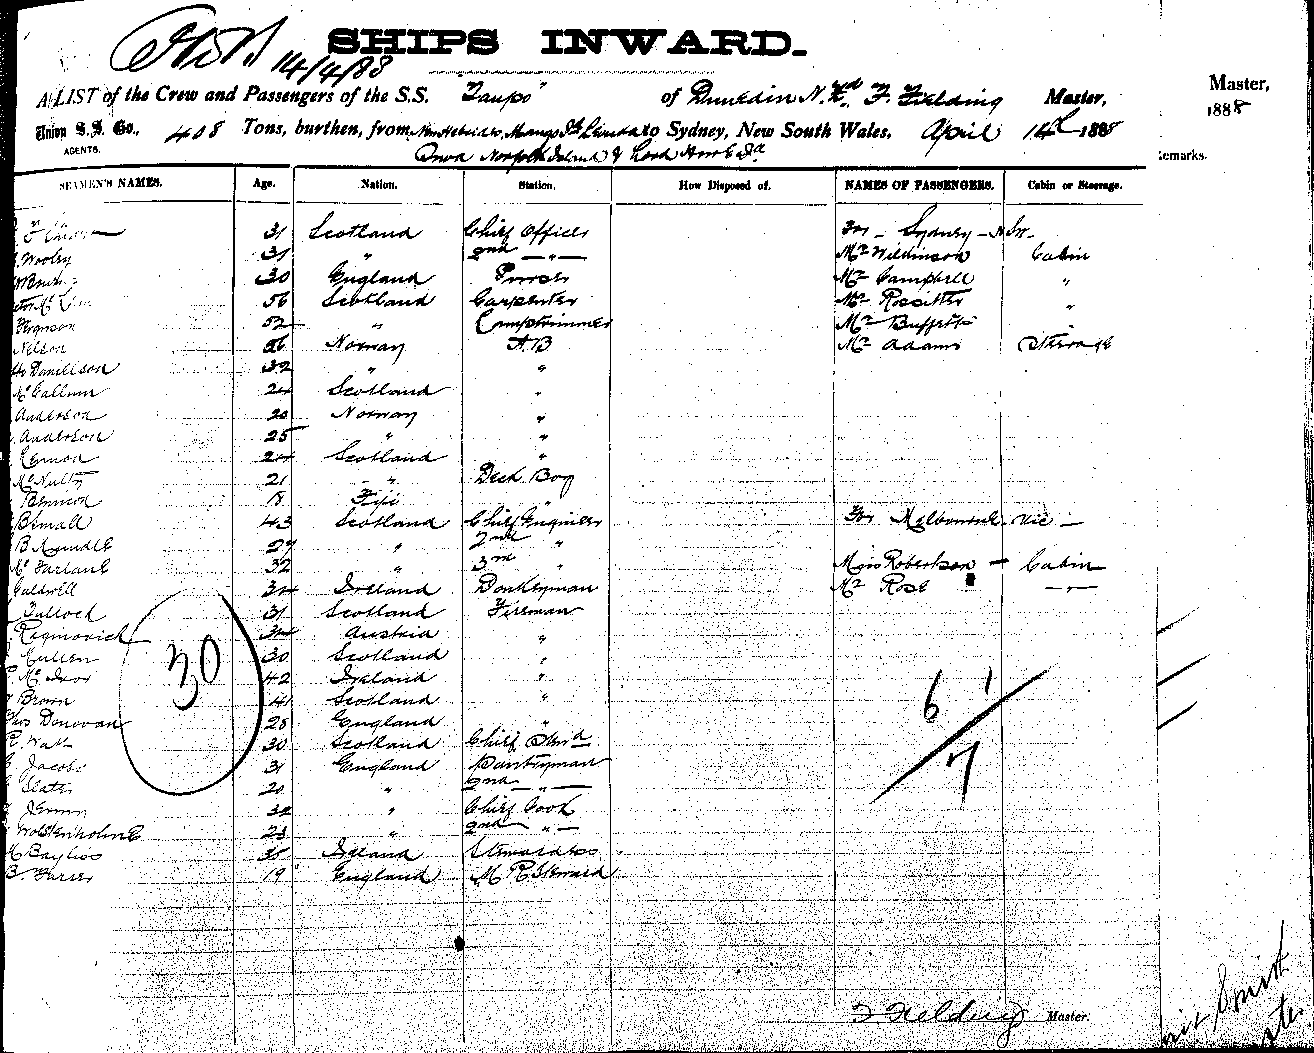 SHIPS INWARD.
14/4/88
A LIST of the Crew and Passengers of the S.S. "Taupo" of Dunedin N. Zd F. Fielding Master,
Union S.S. Co., 408 Tons, burthen, from New Hebrides, to Sydney, New South Wales, April 14th 1888
AGENTS.
Norfolk Island & Lord Howe Id
SEAMEN'S NAMES. Age. Nation. Station. How Disposed of. NAMES OF PASSENGERS. Cabin or Steerage.
31 Scotland Chief Officer For Sydney N.S.W.
Wooley 31 " 2nd " Mr Wilkinson Cabin
30 England Purser Mr Campbell "
56 Scotland Carpenter Mr Rossitter "
Ferguson 52 " Lamptrimmer Mr Buffett
Nelson Norway A.B Mr Adams Steerage
Daniellson 32 " "
McCallum 24 Scotland "
Anderson 20 Norway "
Anderson 25 " "
Lennon 24 Scotland "
McNulty 21 " Deck Boy
Bennison 18 Fiji "
43 Scotland Chief Engineer For Melbourne Vic
27 " 2nd "
McFarlane 32 " 3rd " Miss Robertson Cabin
Caldwell 34 Ireland Donkeyman Mr Rose "
Bullock 31 Scotland Fireman
34 Austria "
Cullen 30 Scotland "
McIvor 42 Ireland "
Brown 41 Scotland "
Donovan 28 England "
30 Scotland Chief Stwd
Jacobs 31 England Pantryman
Slater 20 " 2nd "
32 " Chief Cook
Wolstenholme 23 " 2nd "
Bayliss 35 Ireland Stewardess
19 England M R Steward
30
6 1
7
F Fielding Master.
Master,
1888
emarks.
Smith